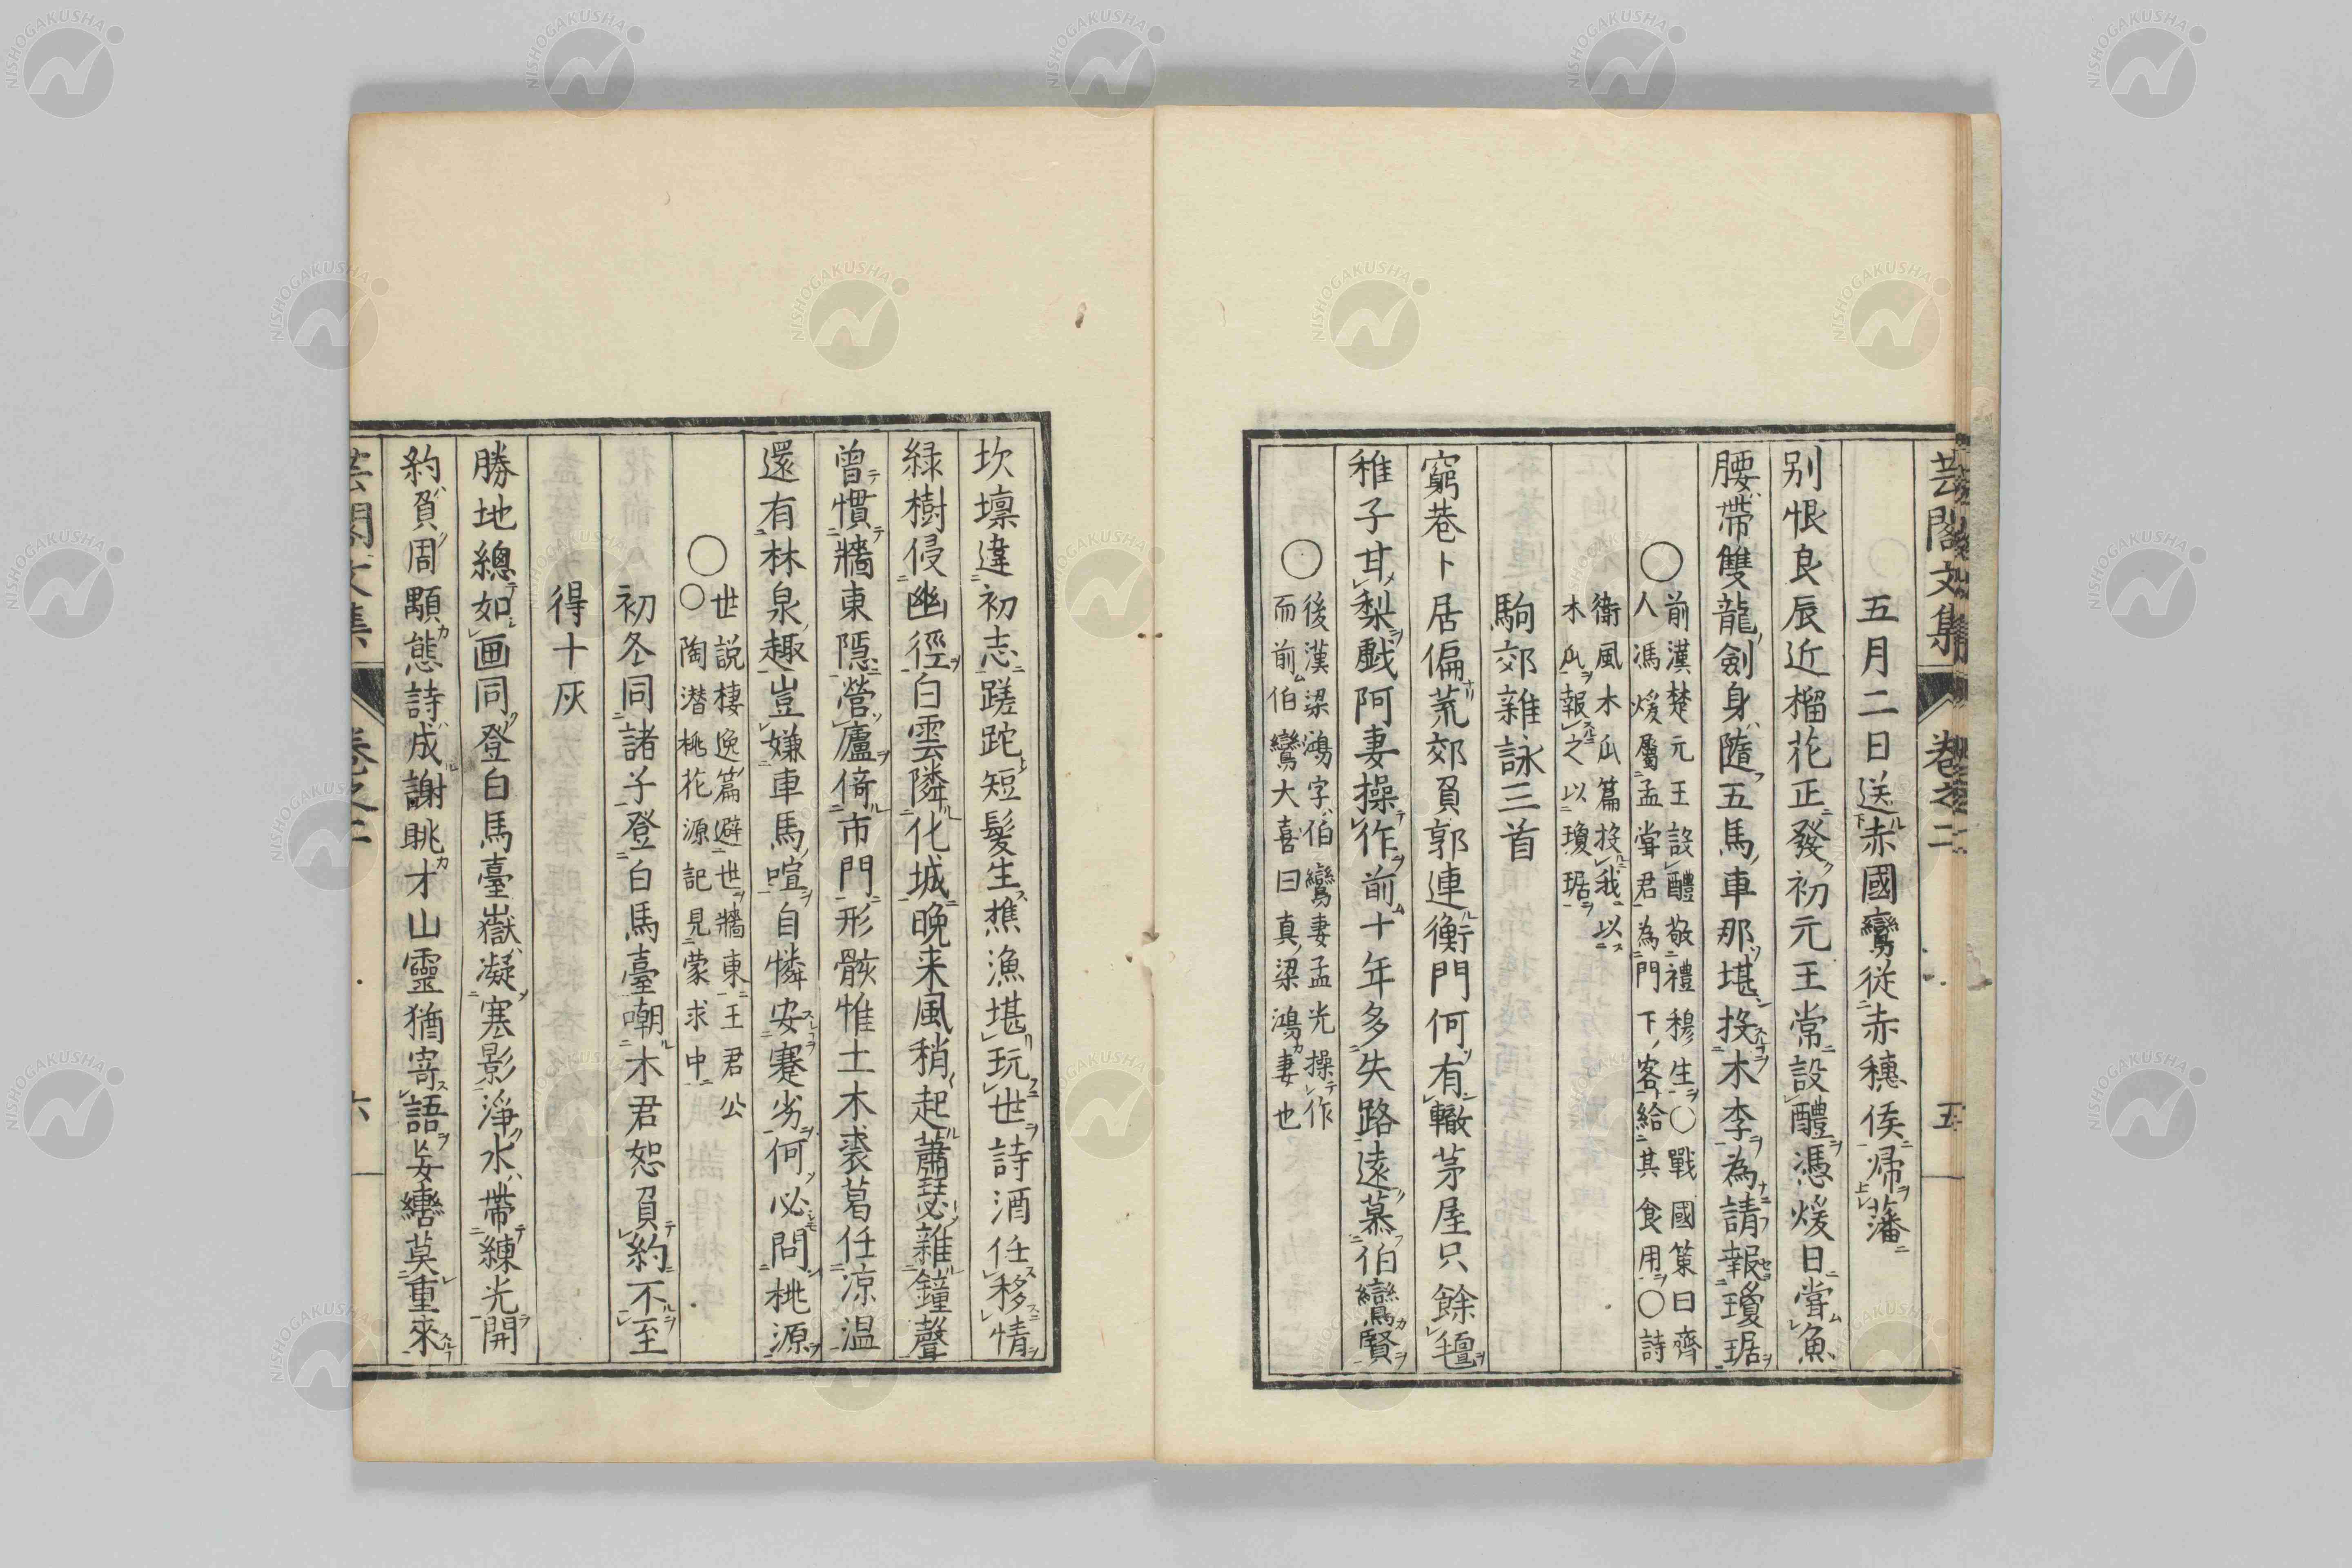 芸閣文集 卷之二 五
五月二日送赤國鸞従赤穗侯帰藩
別恨良辰近榴花正發初元王常設醴馮煖日嘗魚
腰帶雙龍劍身隨五馬車那堪投木李為請報瓊琚
○前漢楚元王設醴敬禮穆生○戰國策曰齊
人馮煖屬孟嘗君為門下客給其食用○詩
衛風木瓜篇投我以
木瓜報之以瓊琚
駒郊雜詠三首
窮巷卜居偏荒郊負郭連衡門何有轍茅屋只餘氊
稚子甘梨戯阿妻操作前十年多失路遠慕伯鸞賢
○後漢梁鴻字伯鸞妻孟光操作
而前伯鸞大喜曰真梁鴻妻也
坎壈違初志蹉跎短髪生樵漁堪玩世詩酒任移情
緑樹侵幽徑白雲隣化城晩来風稍起蕭瑟雜鐘聲
曾慣牆東隱營廬倚市門形骸惟土木裘葛任凉温
還有林泉趣豈嫌車馬喧自憐安蹇劣何必問桃源
○世説棲逸篇避世牆東王君公
○陶潜桃花源記見蒙求中
初冬同諸子登白馬臺嘲木君恕負約不至
得十灰
勝地總如画同登白馬臺嶽凝寒影淨水帶練光開
約負周顒態詩成謝眺才山靈猶寄語妄轡莫重來
芸閣文集 卷之二 六